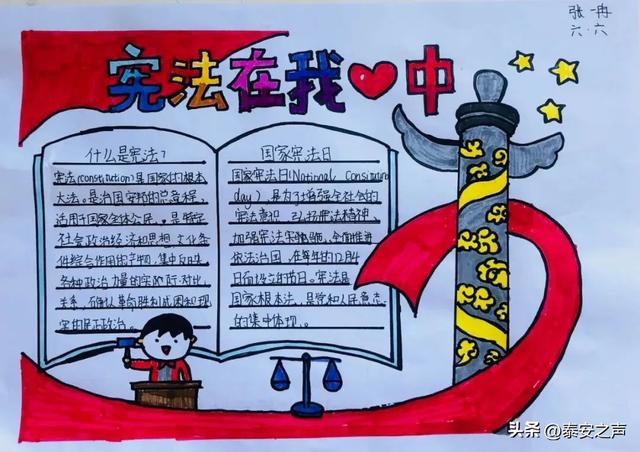 张一冉
六·六
宪法在我中
什么是宪法?
宪法(constitution)是国家的根本
大法。是治国安邦的总章程,
适用于国家全体公民。是特定
社会政治经济和思想文化条
件综合作用的产物,集中反映
各种政治力量的实际对比
关系,确认革命胜利成果和现
实的民主政治。
国家宪法日
国家宪法日(National
day),是为了增强全社会的
宪法意识,弘扬宪法精神
加强宪法实施,全面推进
依法治国,在每年的12月4
日而设立的节日。宪法是
国家根本法,是党和人民意志
的集中体现。
头条 @泰安之声